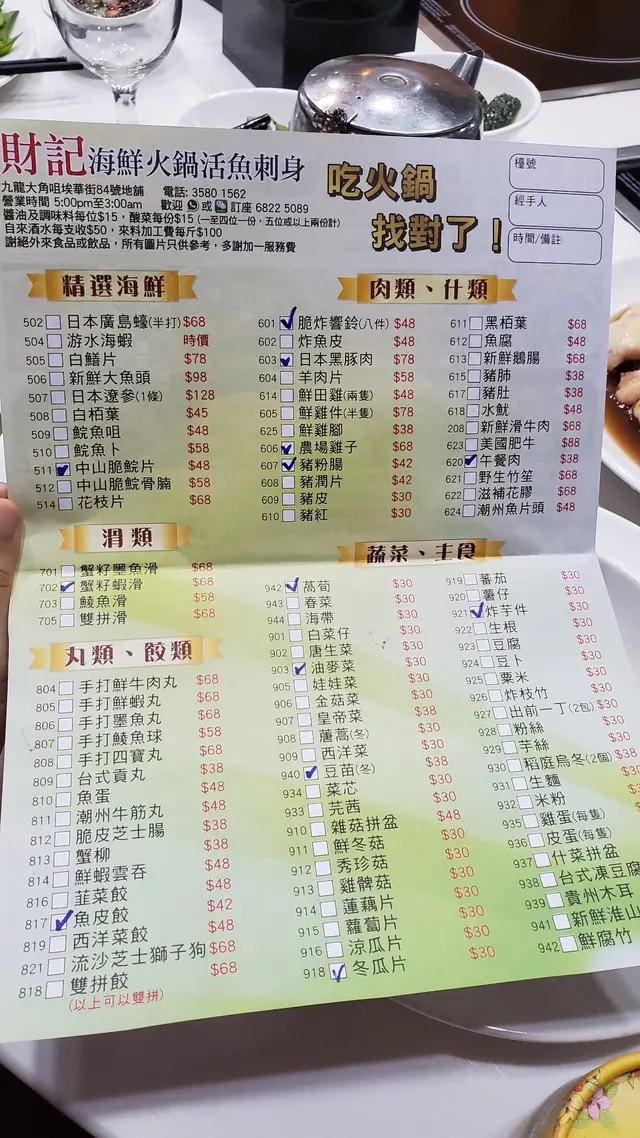 財記海鮮火鍋活魚刺身
九龍大角咀埃華街84號地舖 電話: 3580 1562
營業時間 5:00pm至3:00am 歡迎 或 訂座 6822 5089
醬油及調味料每位$15，酸菜每份$15 (一至四位一份，五位或以上兩份計)
自來酒水每支收$50，來料加工費每斤$100
謝絕外來食品或飲品，所有圖片只供參考，多謝加一服務費
吃火鍋
找對了！
檯號
經手人
時間/備註
精選海鮮
502 日本廣島蠔(半打) $68
504 游水海蝦 時價
505 白鱔片 $78
506 新鮮大魚頭 $98
507 日本遼參(1條) $128
508 白栢葉 $45
509 鯇魚咀 $48
510 鯇魚卜 $58
511 中山脆鯇片 $48
512 中山脆鯇骨腩 $58
514 花枝片 $68
肉類、什類
601 脆炸響鈴(八件) $48
602 炸魚皮 $48
603 日本黑豚肉 $78
604 羊肉片 $58
614 鮮田雞(兩隻) $48
605 鮮雞件(半隻) $78
625 鮮雞腳 $38
606 農場雞子 $68
607 豬粉腸 $42
608 豬潤片 $42
609 豬皮 $30
610 豬紅 $30
611 黑栢葉 $68
612 魚腐 $48
613 新鮮鵝腸 $68
615 豬肺 $38
617 豬肚 $38
618 水魷 $48
208 新鮮滑牛肉 $68
623 美國肥牛 $88
620 午餐肉 $38
621 野生竹笙 $68
622 滋補花膠 $68
624 潮州魚片頭 $48
滑類
701 蟹籽墨魚滑 $68
702 蟹籽蝦滑 $68
703 鯪魚滑 $58
705 雙拼滑 $68
丸類、餃類
804 手打鮮牛肉丸 $68
805 手打鮮蝦丸 $68
806 手打墨魚丸 $68
807 手打鯪魚球 $58
808 手打四寶丸 $68
809 台式貢丸 $38
810 魚蛋 $48
811 潮州牛筋丸 $48
812 脆皮芝士腸 $38
813 蟹柳 $38
814 鮮蝦雲吞 $48
816 韮菜餃 $48
817 魚皮餃 $42
819 西洋菜餃 $48
821 流沙芝士獅子狗 $68
818 雙拼餃 $68
(以上可以雙拼)
蔬菜、主食
942 萵筍 $30
943 春菜 $30
944 海帶 $30
901 白菜仔 $30
902 唐生菜 $30
903 油麥菜 $30
905 娃娃菜 $30
906 金菇菜 $30
907 皇帝菜 $38
908 藘蒿(冬) $30
909 西洋菜 $30
940 豆苗(冬) $38
934 菜芯 $30
933 芫茜 $30
910 雜菇拼盆 $48
911 鮮冬菇 $30
912 秀珍菇 $30
913 雞髀菇 $30
914 蓮藕片 $30
915 蘿蔔片 $30
916 涼瓜片 $30
918 冬瓜片 $30
919 蕃茄 $30
920 薯仔 $30
921 炸芋件 $30
922 生根 $30
923 豆腐 $30
924 豆卜 $30
925 粟米 $30
926 炸枝竹 $30
927 出前一丁(2包) $30
928 粉絲 $30
929 芋絲 $30
930 稻庭烏冬(2個) $38
931 生麵
932 米粉
935 雞蛋(每隻)
936 皮蛋(每隻)
937 什菜拼盆
938 台式凍豆腐
939 貴州木耳
941 新鮮淮山
942 鮮腐竹